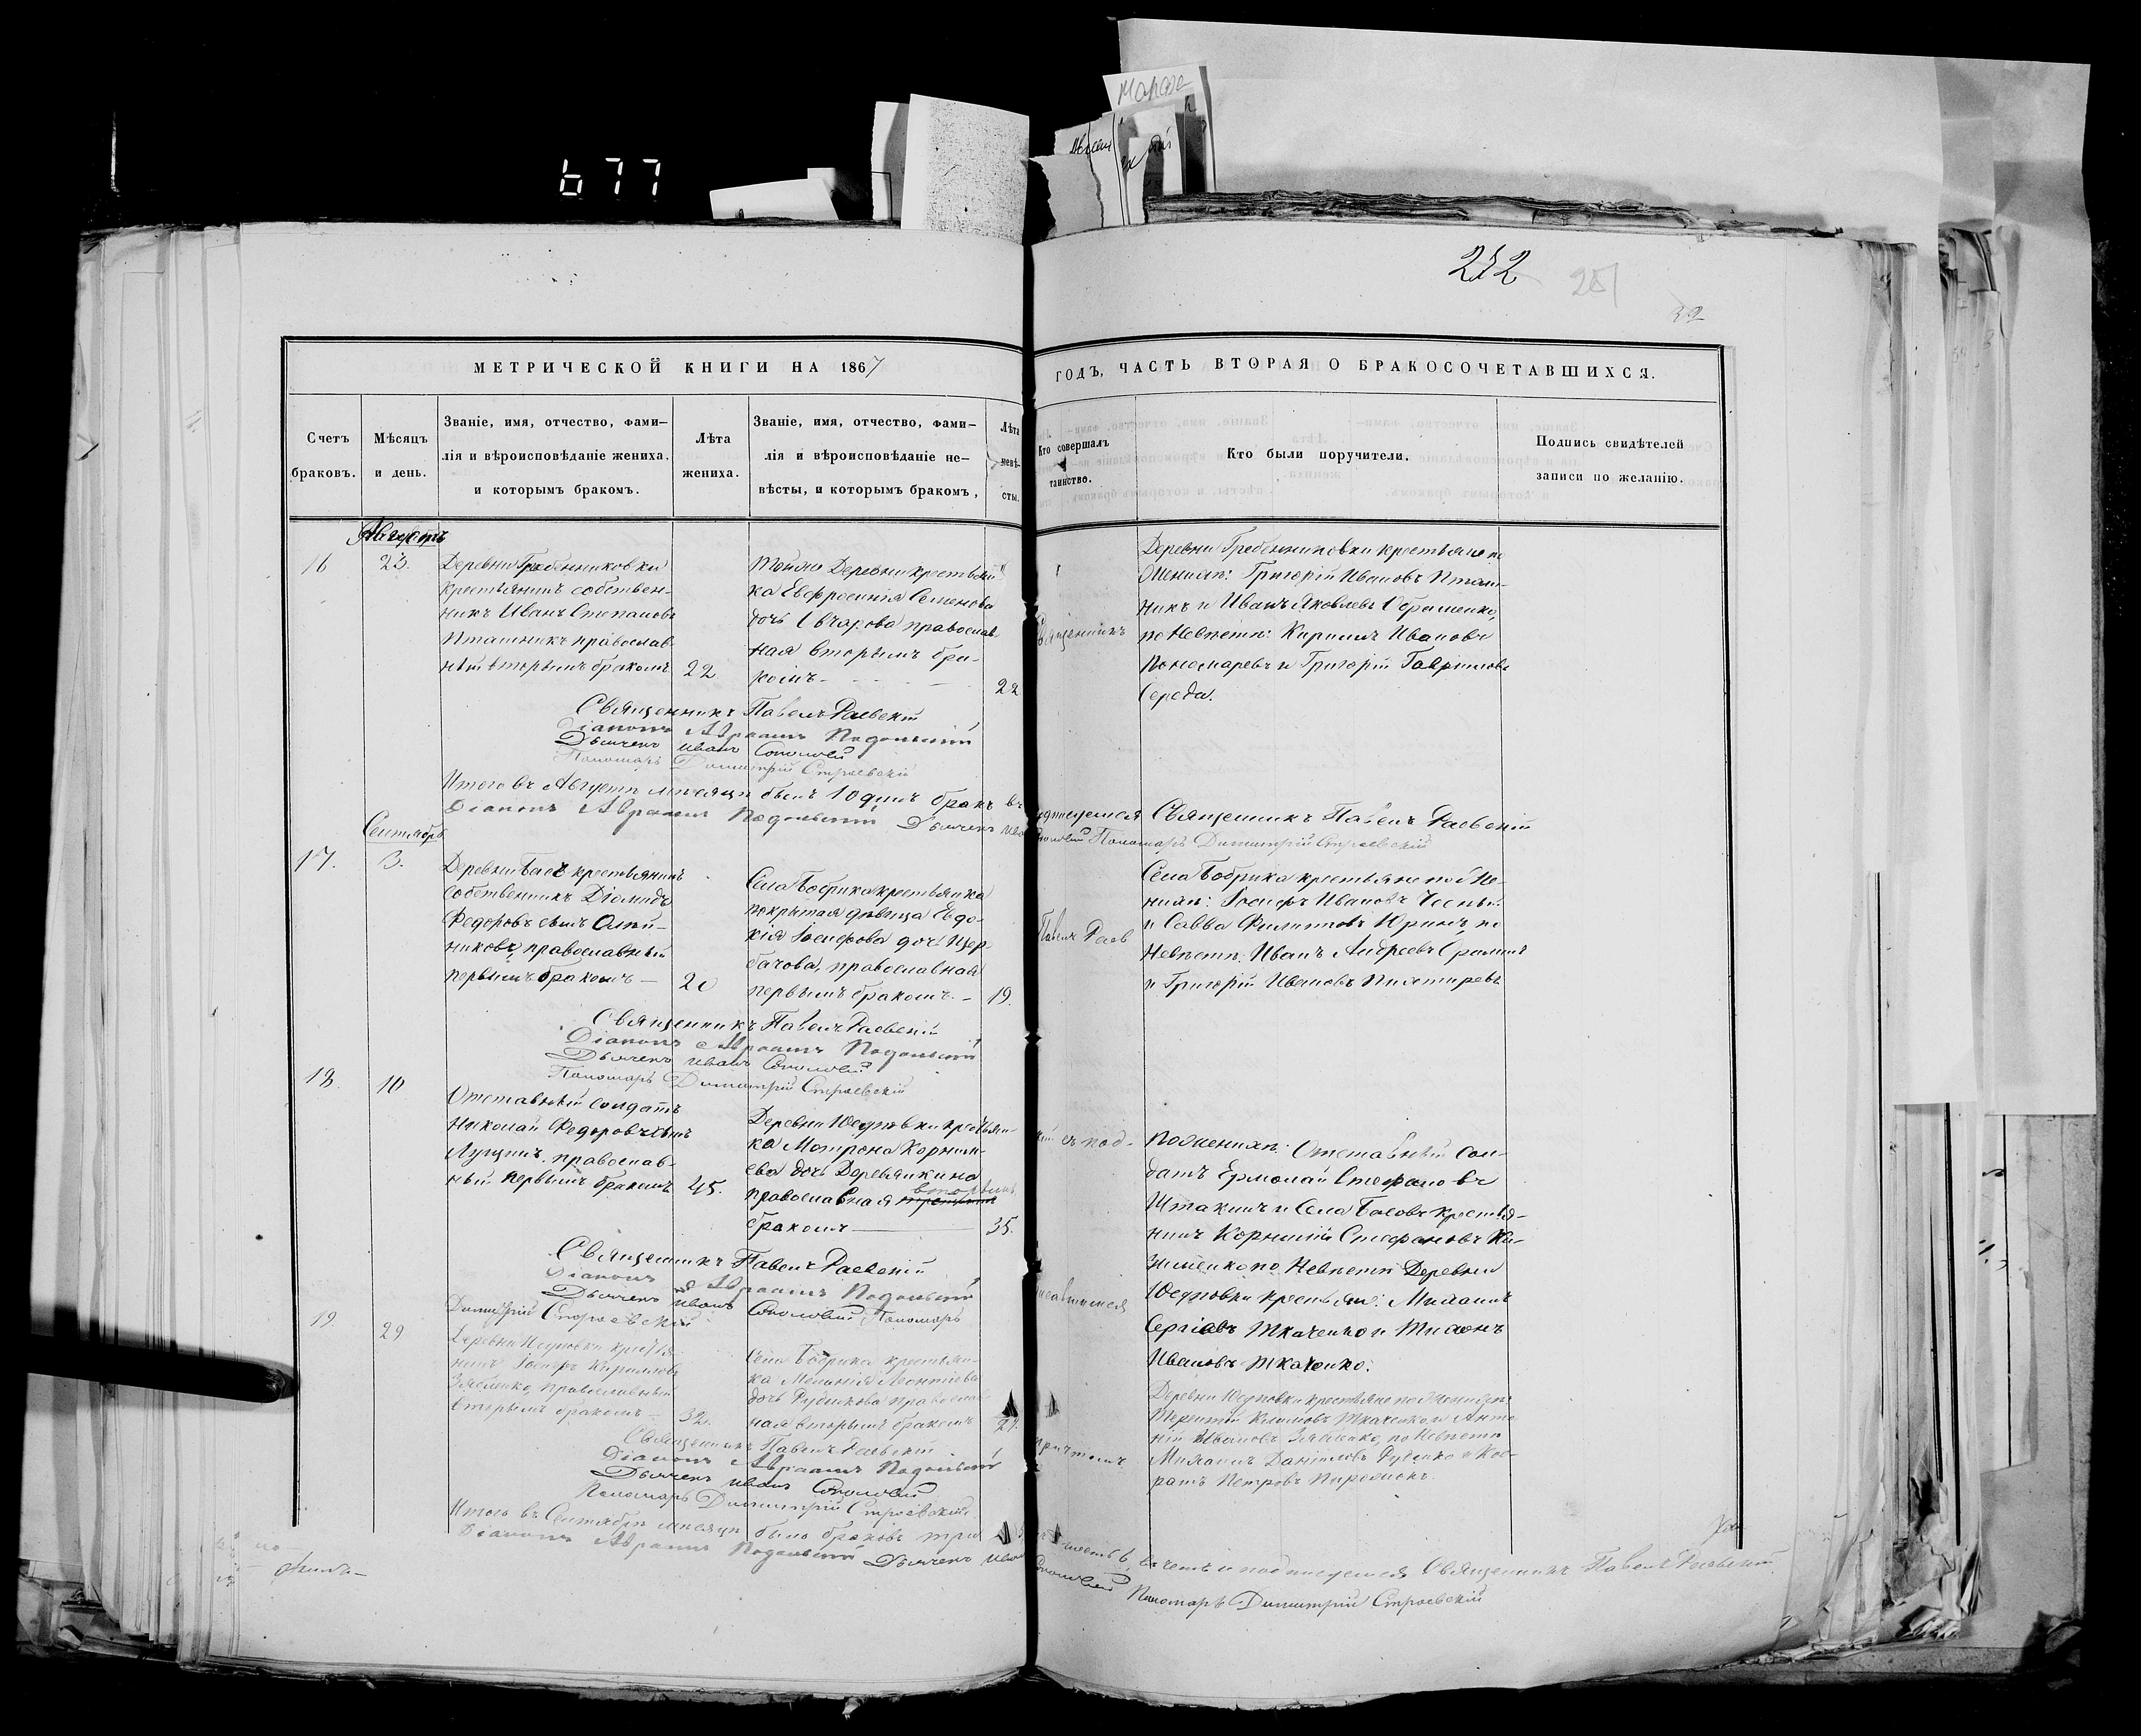 677
Мараа
252
251
32
МЕТРИЧЕСКОЙ КНИГИ НА 1867
ГОДЪ, ЧАСТЬ ВТОРАЯ О БРАКОСОЧЕТАВШИХСЯ.
Счетъ браковъ.
Мѣсяцъ и день.
Званіе, имя, отчество, фами-
лія и вѣроисповѣданіе жениха,
и которымъ бракомъ.
Лѣта жениха.
Званіе, имя, отчество, фами-
лія и вѣроисповѣданіе не-
вѣсты, и которымъ бракомъ,
Лѣта невѣ-
сты.
Кто совершалъ
таинство.
Кто были поручители.
Подпись свидѣтелей
записи по желанію.
Августъ
16
23.
Деревни Гребенниковки
крестьянинъ собствен-
никъ Иванъ Степановъ
Пташникъ православ-
ный вторымъ бракомъ
22
тойже Деревни крестьян-
ка Евфросинія Семенова
дочь Овчарова православ
ная вторымъ бра-
комъ
22
Священникъ
Деревни Гребенниковки крестьяне по
Женихѣ: Григорій Ивановъ Пташ-
никъ и Иванъ Яковлевъ Абраменко,
по Невѣстѣ: Кириллъ Ивановъ
Пономаревъ и Григорій Гавріиловъ
Середа.
Священникъ Павелъ Раевскій
Діаконъ Авраамъ Подольскій
Дьячекъ Иванъ Соколовій
Пономарь Димитрій Строевскій
Итого въ Августѣ мѣсяцѣ былъ 1 одинъ бракъ въ
Діаконъ Авраамъ Подольскій Дьячекъ Иванъ
подписуемся Священникъ Павелъ Раевскій
Соколовій Пономарь Димитрій Строевскій
Сентябрь
17.
3.
Деревни Басъ крестьянинъ
собственникъ Діомидъ
Федоровъ сынъ Олей-
никовъ, православный
первымъ бракомъ —
20
Села Бобрика крестьянка
покрытая дѣвица Евдо-
кія Іосифова дочь Щер-
бачова, православная
первымъ бракомъ. —
19.
Павелъ Раев
Села Бобрика крестьяне по Же-
нихѣ: Іосифъ Ивановъ
и Савва Филипповъ Юринъ, по
Невѣстѣ: Иванъ Андреевъ
и Григорій Ивановъ
Священникъ Павелъ Раевскій
Діаконъ Авраамъ Подольскій
Дьячекъ Иванъ Соколовій
Пономарь Димитрій Строевскій
18.
10
Отставный солдатъ
Николай Федоровъ сынъ
православ-
ный первымъ бракомъ
45.
Деревни крестьян-
ка Мотрона Корнил-
ева дочь Деревянкина
православная вторымъ
бракомъ
35.
кій съ под-
По Женихѣ: Отставный сол-
датъ Ермолай Стефановъ
и Села Басовъ крестья-
нинъ Корнилій Стефановъ
по Невѣстѣ Деревни
крестьян:
Сергіевъ Ткаченко и
Ивановъ Ткаченко.
Священникъ Павелъ Раевскій
Діаконъ Авраамъ Подольскій
Дьячекъ Иванъ Соколовій Пономарь
Димитрій Строевскій
писавшимся
19.
29
Деревни крестья-
нинъ Іосифъ Кирилловъ
православный
вторымъ бракомъ —
32.
Села Бобрика крестьян-
ка Меланія Леонтіева
дочь Рудикова православ
ная вторымъ бракомъ
27.
причтомъ
Деревни крестьяне по Женихѣ:
Терентій Климовъ Ткаченко и Анто-
ній Ивановъ по Невѣстѣ
Даніиловъ Руденко и Код-
ратъ Петровъ
Священникъ Павелъ Раевскій
Діаконъ Авраамъ Подольскій
Дьячекъ Иванъ Соколовій
Пономарь Димитрій Строевскій
Итого въ Сентябрѣ мѣсяцѣ было браковъ три
Діаконъ Авраамъ Подольскій Дьячекъ Иванъ
подписуемся Священникъ Павелъ Раевскій
Соколовій Пономарь Димитрій Строевскій